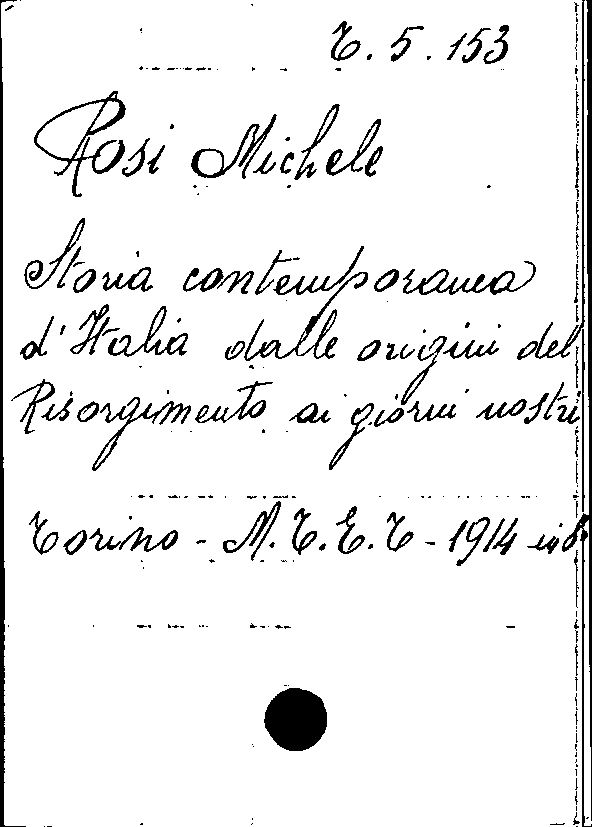 T. 5. 153
Rosi Michele
Storia contemporanea
d'Italia dalle origini del
Risorgimento ai giorni nostri
Torino - M.T.E.T - 1914 in 8°